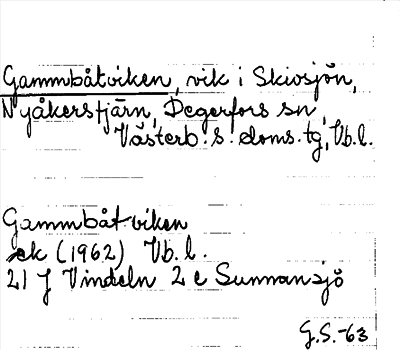 Gammbåtviken, vik i Skivsjön,
Nyåkerstjärn, Degerfors sn,
Västerb. s. doms. tg, Vb. l.
Gammbåt-viken
ek (1962) Vb. l.
21 J Vindeln 2 c Sunnansjö
G.S.-63